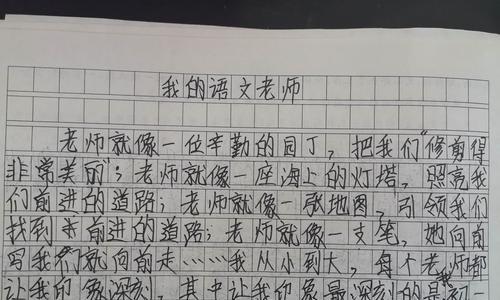 我的语文老师
老师就像一位辛勤的园丁，把我们“修剪得
非常美丽”；老师就像一座海上的灯塔，照亮我
们前进的道路；老师就像一张地图，引领我们
找到前进的道路；老师就像一支笔，她向前
写我们就向前走……我从小到大，每个老师都
让我印象深刻，其中让我印象最深刻的是初一